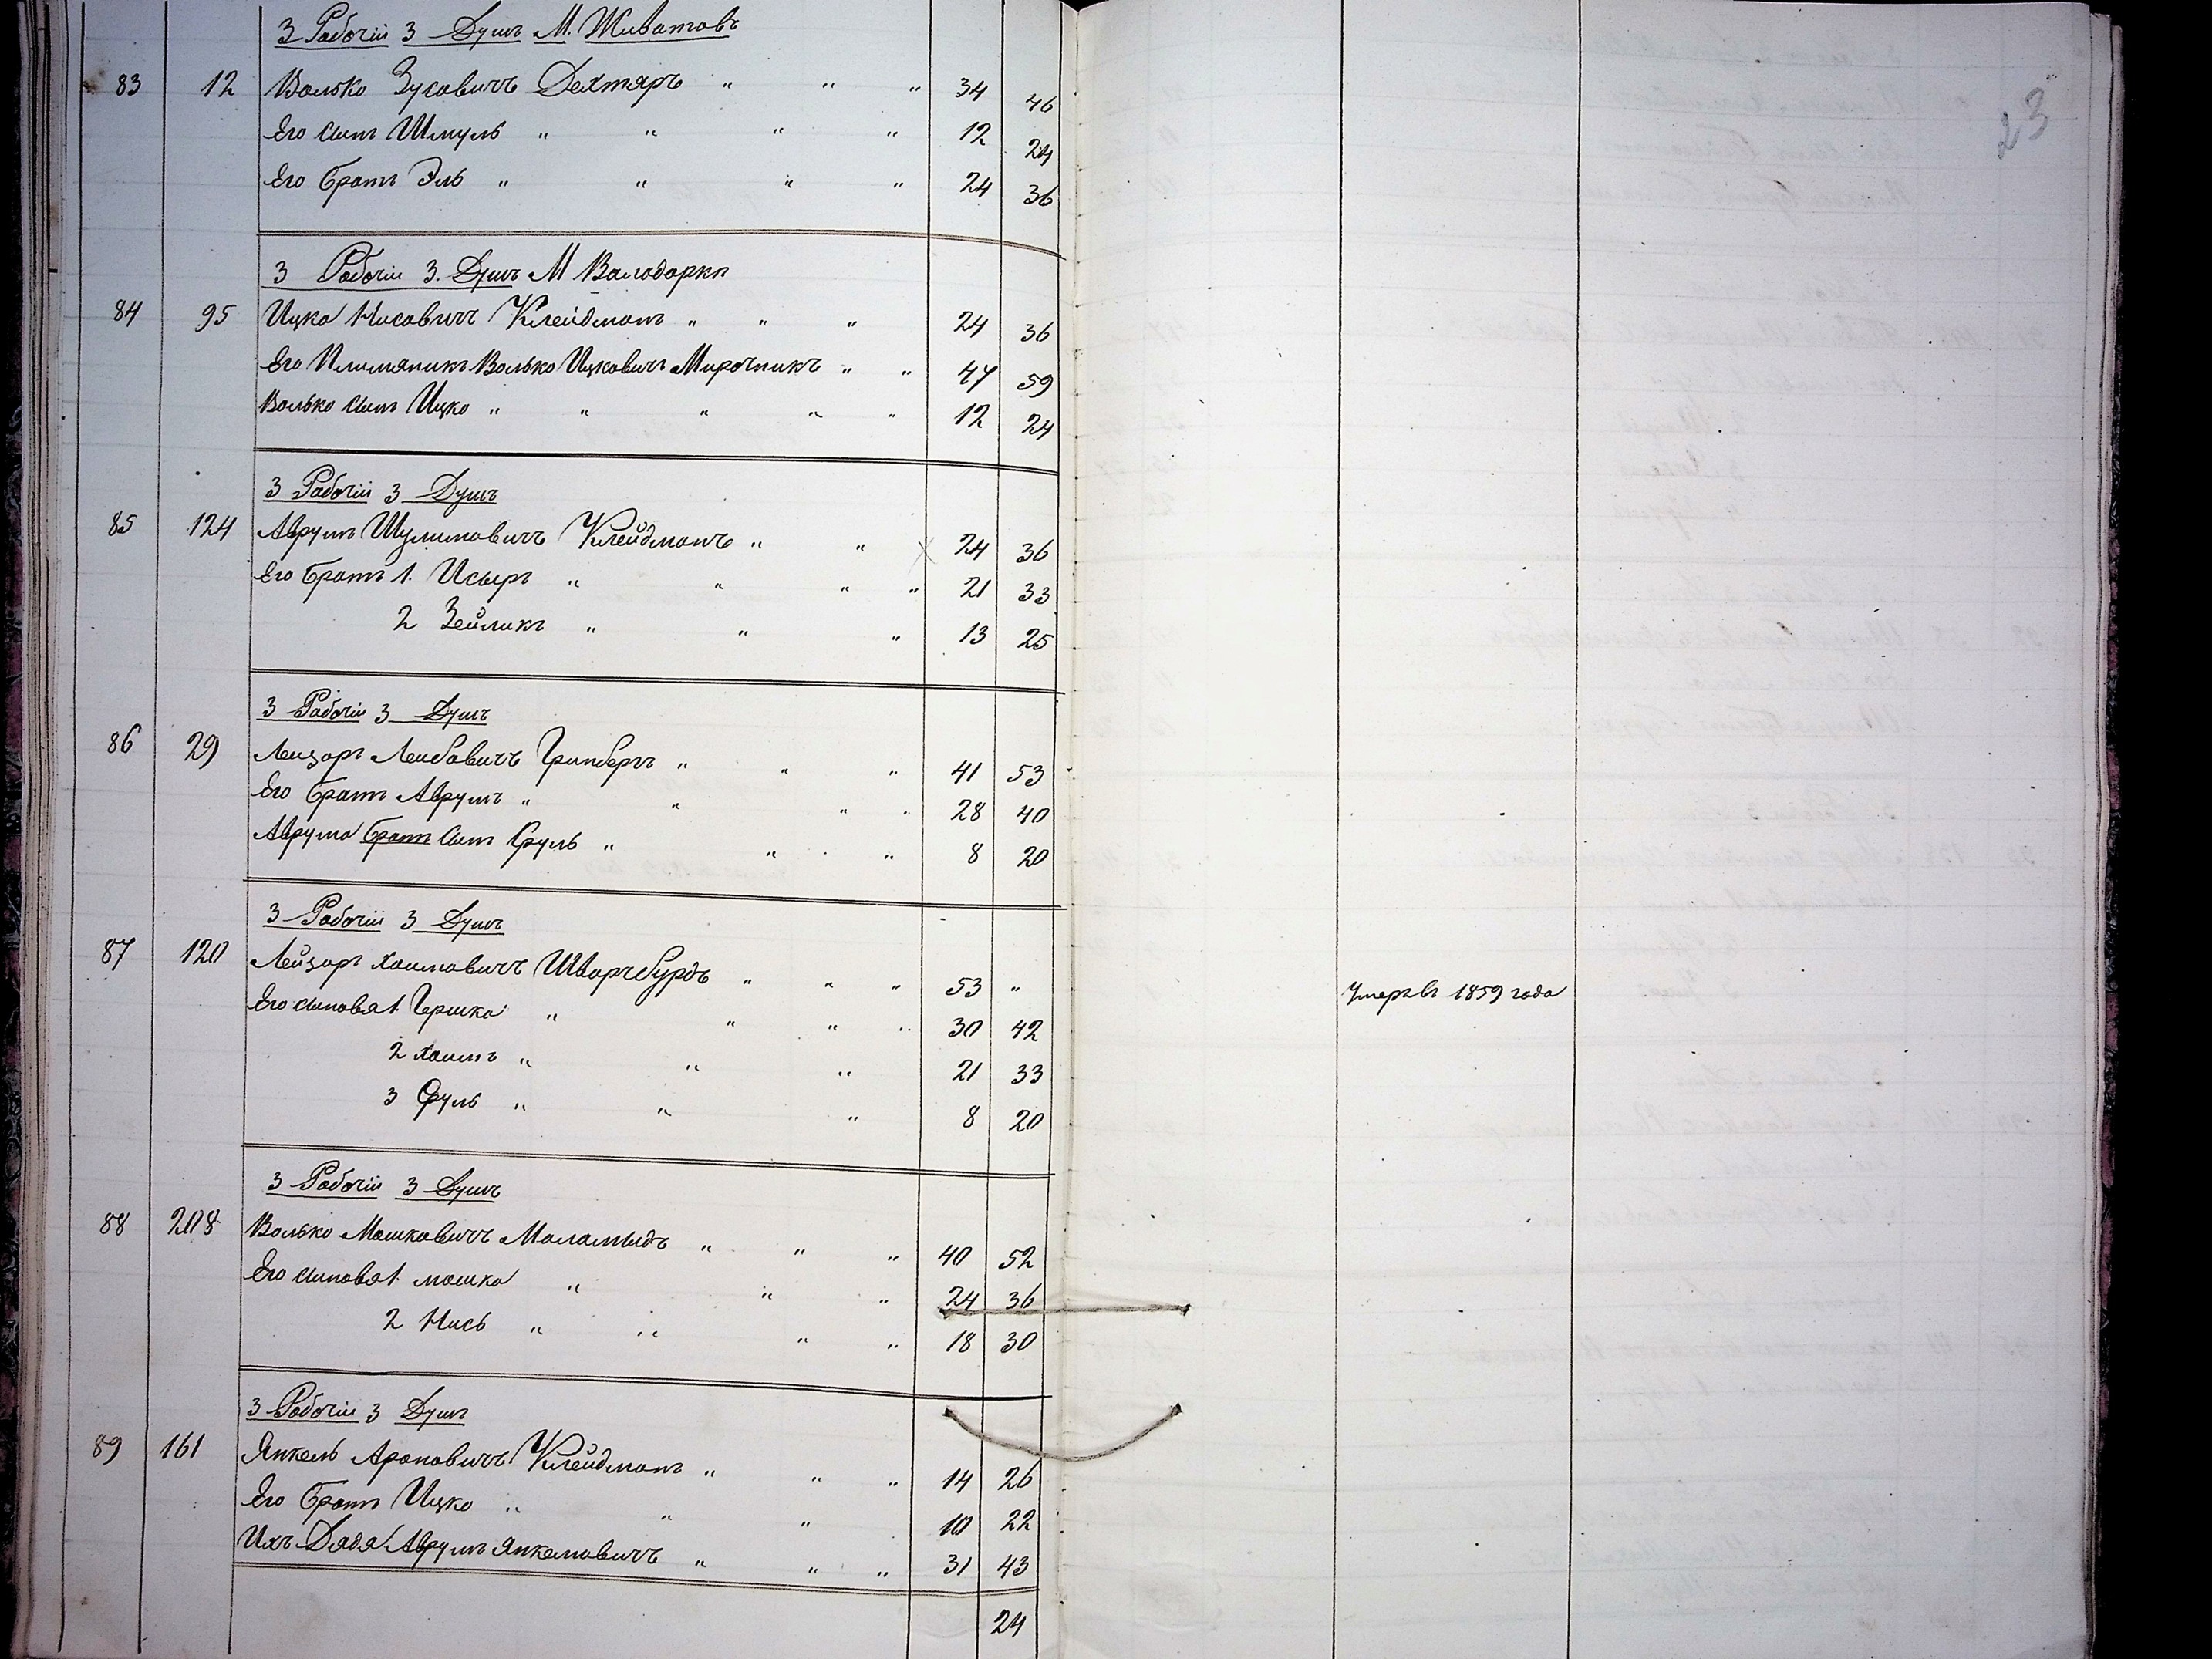 3 Рабочіи 3 Душъ М. Животовъ
83 12 Волько Зусовичъ Дехтяръ " " " 34 46
Его сынъ Шмуль " " " " 12 24
Его братъ Эль " " " " 24 36
3 Рабочіи 3. Душъ М Володарки
84 95 Ицко Нисовичъ Клейдманъ " " " 24 36
Его Племяникъ Волько Ицковичъ Мирочникъ " " 47 59
Волько сынъ Ицко " " " " " 12 24
3 Рабочіи 3 Душъ
85 124 Аврумъ Шулимовичъ Клейдманъ " " 24 36
Его братъ 1. Исыръ " " " " 21 33
2 Зейликъ " " " 13 25
3 Рабочіи 3 Душъ
86 29 Лейзоръ Лейбовичъ Гринбергъ " " " 41 53
Его братъ Аврумъ " " " " 28 40
Аврума братъ сынъ Сруль " " " 8 20
3 Рабочіи 3 Душъ
87 120 Лейзоръ Хаимовичъ Шварчбурдъ " " " 53 " Умеръ въ 1859 года
Его сыновя 1. Гершко " " " " 30 42
2 Хаимъ " " " 21 33
3 Сруль " " " 8 20
3 Рабочіи 3 Душъ
88 208 Волько Мошковичъ Маламыдъ " " " 40 52
Его сыновя 1. мошко " " " 24 36
2 Нись " " " " 18 30
3 Рабочіи 3 Душъ
89 161 Янкель Ароновичъ Клейдманъ " " " 14 26
Его братъ Ицко " " " 10 22
Ихъ Дядя Аврумъ Янкелиовичъ " " " 31 43
24
23